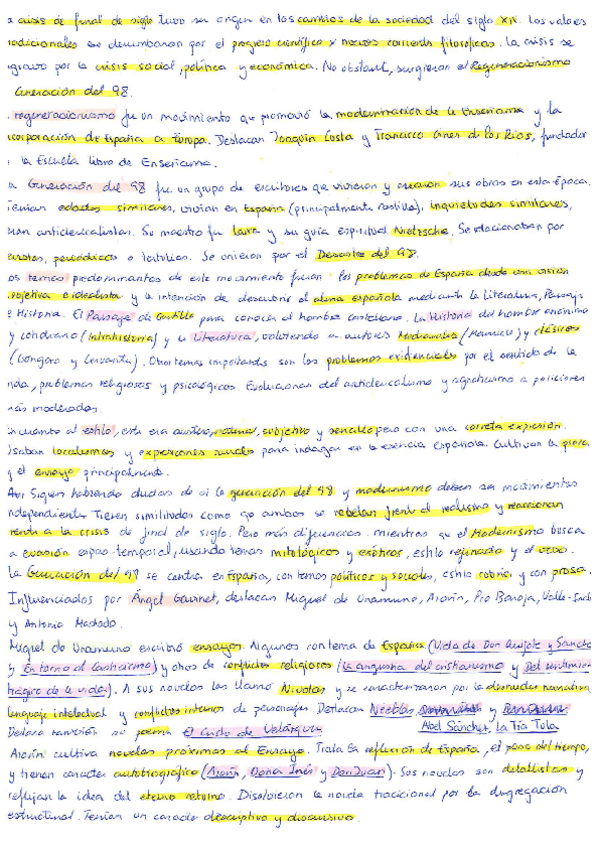 a crisis de final de siglo tuvo su origen en los cambios de la sociedad del siglo XIX. Los valores
radicionales se derrumbaron por el progreso científico y nuevas corrientes filosóficas. La crisis se
agravó por la crisis social, política y económica. No obstante, surgieron el Regeneracionismo
Generación del 98.
regeneracionismo fue un movimiento que promovió la modernización de la Enseñanza y la
ncorporación de España a Europa. Destacan Joaquín Costa y Francisco Giner de los Ríos, fundador
la Escuela Libre de Enseñanza.
a Generación del 98 fue un grupo de escritores que vivieron y crearon sus obras en esta época.
Tenían edades similares, vivían en España (principalmente Castilla), inquietudes similares,
eran anticlericalistas. Su maestro fue Larra y su guía espiritual Nietzsche. Se relacionaban por
revistas, periódicos o tertulias. Se unieron por el Desastre del 98.
os temas predominantes de este movimiento fueron los problemas de España desde una visión
subjetiva e idealista y la intención de descubrir el alma española mediante la Literatura, Paisaje
e Historia. El Paisaje de Castilla para conocer al hombre castellano. La Historia del hombre anónimo
y cotidiano (intrahistoria) y la Literatura, valorando a autores Medievales (Manrique) y clásicos
(Góngora y Cervantes). Otros temas importantes son los problemas existenciales por el sentido de la
vida, problemas religiosos y psicológicos. Evolucionan del anticlericalismo y agnosticismo a posiciones
más moderadas.
En cuanto al estilo, este era austero, natural, subjetivo y sencillo pero con una correcta expresión.
Usaban localismos y expresiones rurales para indagar en la esencia española. Cultivan la prosa
y el ensayo principalmente.
Aún siguen habiendo dudas de si la generación del 98 y modernismo deben ser movimientos
independientes. Tienen similitudes como que ambos se rebelan frente al realismo y reaccionan
frente a la crisis de final de siglo. Pero más diferencias. mientras que el Modernismo busca
a evasión espacio-temporal, usando temas mitológicos y exóticos, estilo refinado y el verso.
La Generación del 98 se centra en España, con temas políticos y sociales, estilo sobrio y con prosa.
Influenciados por Ángel Ganivet, destacan Miguel de Unamuno, Azorín, Pío Baroja, Valle-Incl
y Antonio Machado.
Miguel de Unamuno escribió ensayos. Algunos con tema de España (Vida de Don Quijote y Sancho
y En torno al Casticismo) y otros de conflictos religiosos (La angustia del cristianismo y Del sentimiento
trágico de la vida). A sus novelas las llamó Nivolas y se caracterizaron por la desnudez narrativa,
lenguaje intelectual y conflictos internos de personajes. Destacan Niebla,
Destaca también su poema El Cristo de Velázquez Abel Sánchez, La Tía Tula
Azorín cultiva novelas próximas al Ensayo. Trata la reflexión de España, el paso del tiempo,
y tienen carácter autobiográfico (Azorín, Doña Inés y Don Juan). Sus novelas son detallistas y
reflejan la idea del eterno retorno. Disolvieron la novela tradicional por la disgregación
estructural. Tenían un caracter descriptivo y discursivo.